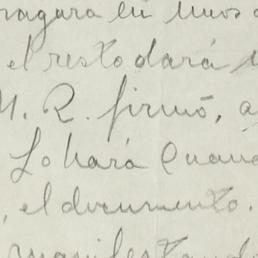 pagara en unos
el resto dará
M. R. firmó, a
Lo hará Cuand
, el documento.
manifestand